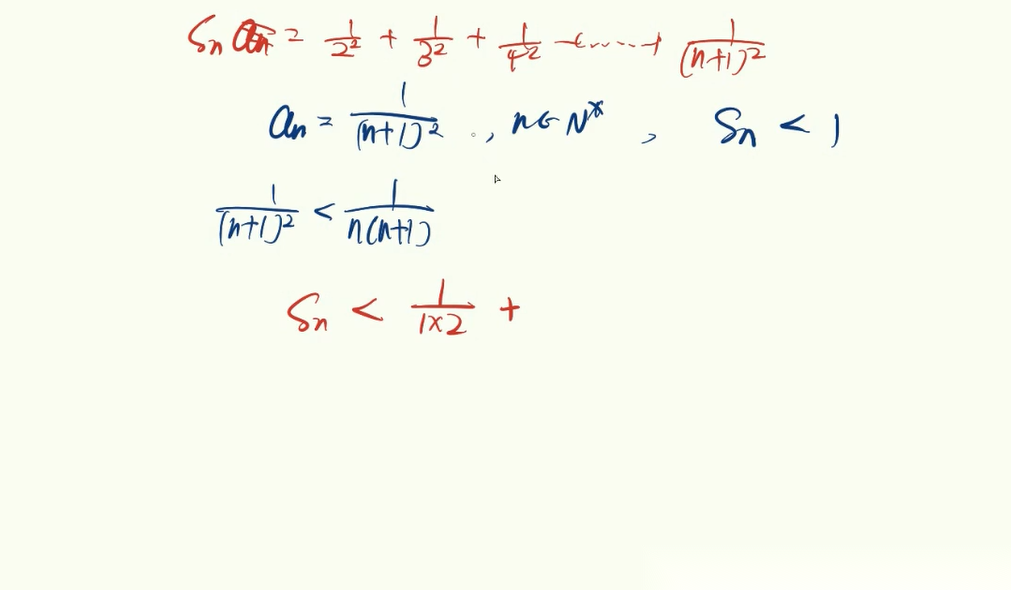 Sn = 1/2² + 1/3² + 1/4² + ...... + 1/(n+1)²
an = 1/(n+1)² , n∈N* , Sn < 1
1/(n+1)² < 1/n(n+1)
Sn < 1/1×2 +